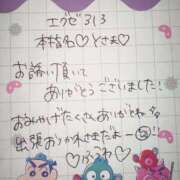 エグゼ313
本指名♡とさま♡
お誘い頂いて
ありがとうございました!
おみやげたくさんありがとね
出張おつかれさまだよー
♡ふうわ♡